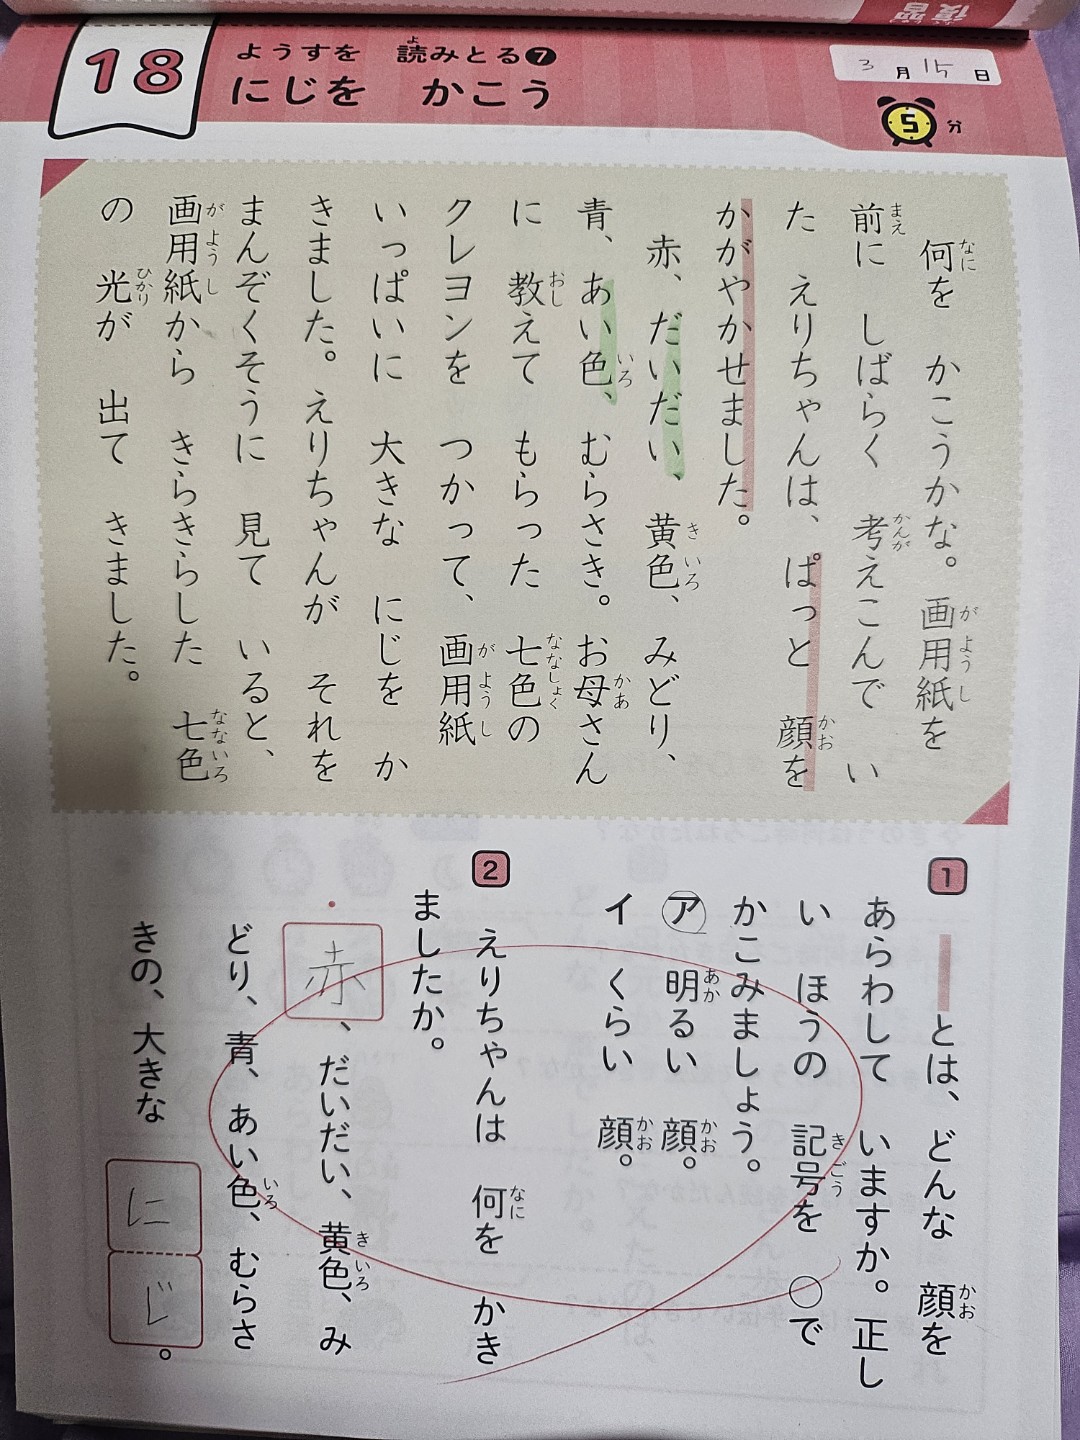 復習
18
ようすを 読みとる7
にじを かこう
3月15日
5分
何を かこうかな。画用紙を
前に しばらく 考えこんで い
た えりちゃんは、ぱっと 顔を
かがやかせました。
赤、だいだい、黄色、みどり、
青、あい色、むらさき。お母さん
に 教えて もらった 七色の
クレヨンを つかって、画用紙
いっぱいに 大きな にじを か
きました。えりちゃんが それを
まんぞくそうに 見て いると、
画用紙から きらきらした 七色
の 光が 出て きました。
1
とは、どんな 顔を
あらわして いますか。正し
い ほうの 記号を ○で
かこみましょう。
ア 明るい 顔。
イ くらい 顔。
2
えりちゃんは 何を かき
ましたか。
赤、だいだい、黄色、み
どり、青、あい色、むらさ
きの、大きな にじ。